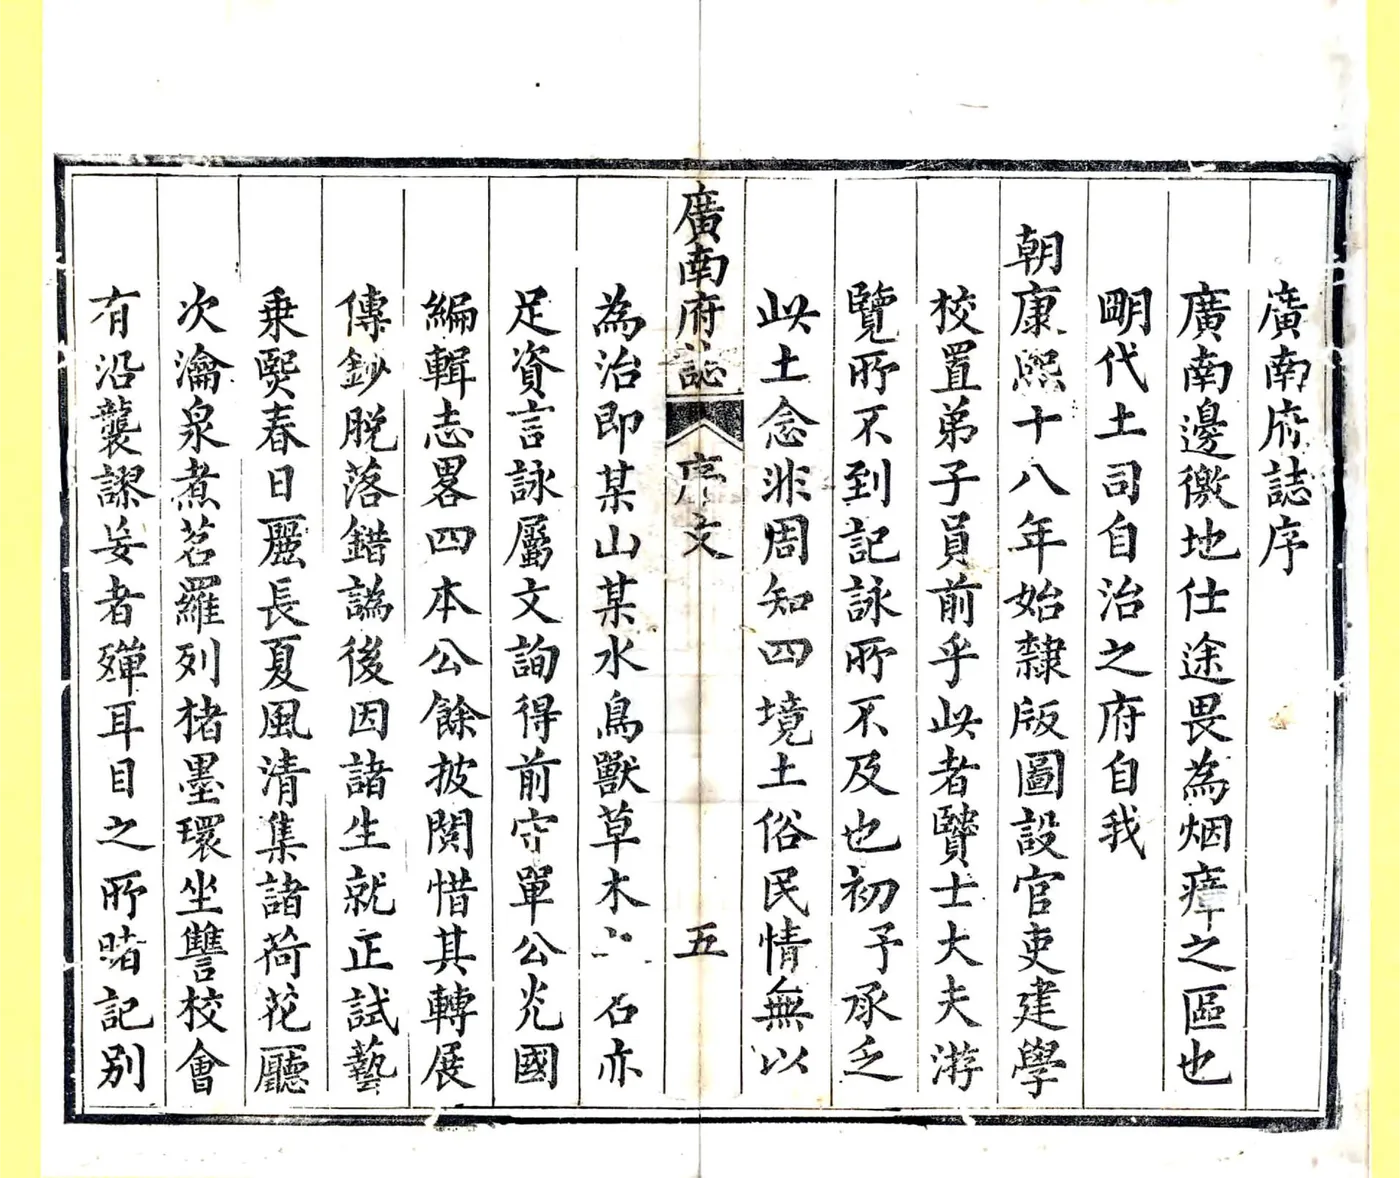 廣南府誌序
廣南邊徼地仕途畏為烟瘴之區也
明代土司自治之府自我
朝康熙十八年始隸版圖設官吏建學
校置弟子員前乎此者賢士大夫游
覽所不到記詠所不及也初予承乏
此土念非周知四境土俗民情無以
廣南府誌 序文 五
為治即某山某水鳥獸草木 石亦
足資言詠屬文詢得前守單公光國
編輯志畧四本公餘披閱惜其轉展
傳鈔脫落錯譌後因諸生就正試藝
乗熙春日麗長夏風清集諸荷花廳
次瀹泉煮茗羅列楮墨環坐讐校會
有沿襲謬妄者殫耳目之所睹記別